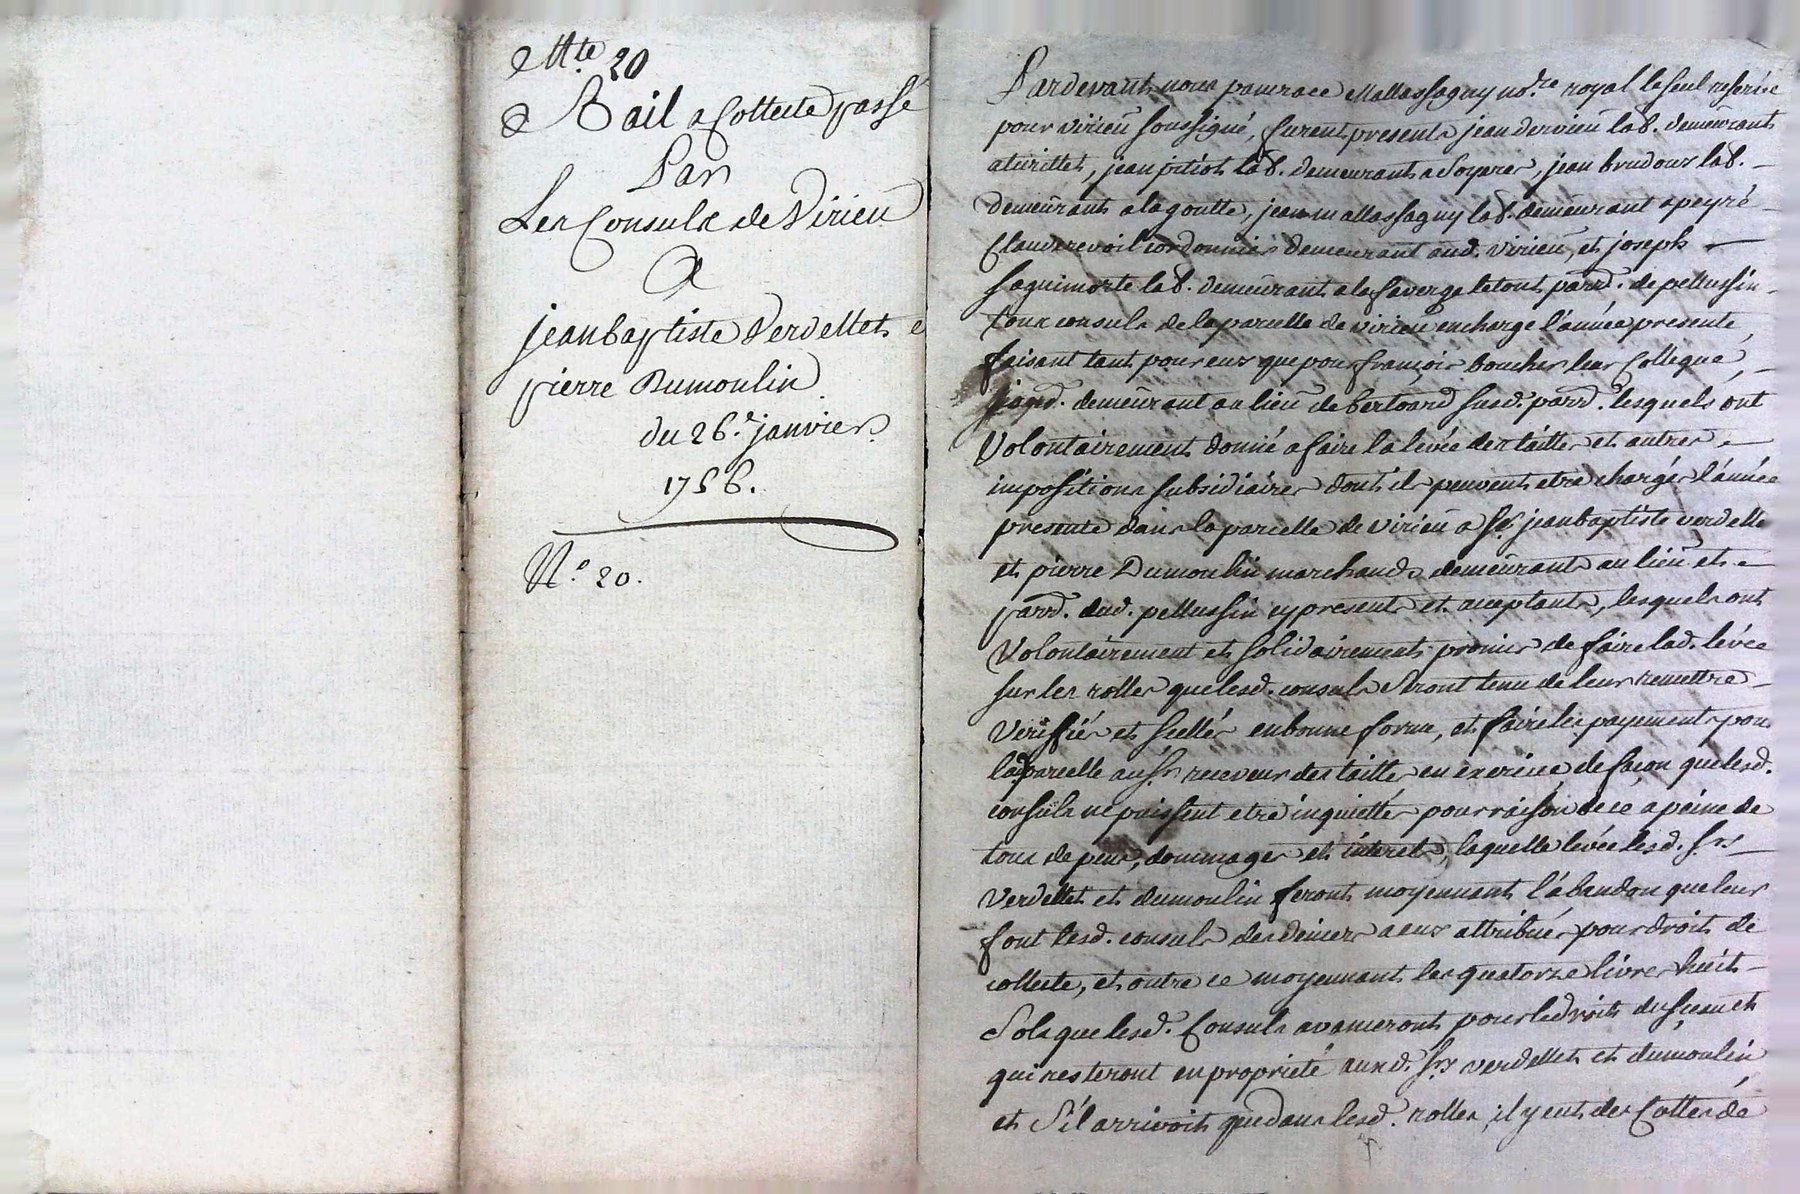 Cotte 20
Bail a Collecte passé
Par
Les Consuls de Virieu
A
jean baptiste Verdellet e
pierre Dumoulin
du 26.e janvier
1756.
N.o 20.
Pardevant nous pancrace Mallassagny no.re royal le seul reservé
pour virieu soussigné, furent presents jean dervieu lab. demeurant
a lurillet, jean pitiot lab. demeurant a Soyere, jean brudour lab.
demeurant a la goutte, jean mallassagny lab. demeurant a peyré
Claude revoil cordonnier demeurant aud. virieu, et joseph
saguimorte lab. demeurant a la faverge le tout parr. de pellussin
tous consuls de la parcelle de virieu en charge l'année presente,
faisant tant pour eux que pour françois boucher leur collegue,
demeurant au lieu de bertoard susd. parr. lesquels ont
Volontairement donné a faire la levée des tailles et autres
impositions subsidiaires dont ils peuvent etre chargés l'année
presente dans la parcelle de virieu a Sr. jean baptiste verdelle
et pierre Dumoulin marchands demeurants au lieu et
parr. dud. pellussin cy presents et acceptants, lesquels ont
Volontairement et solidairement promis de faire lad. levée
sur les rolles que lesd. consuls seront tenu de leur remettre
Verifiés et scellés en bonne forme, et faire les payements pour
lad. parcelle au Sr. receveur des tailles en exercice de façon que lesd.
consuls ne puissent etre inquiettés pour raison de ce a peine de
tous depens, dommages et interets, laquelle levée lesd. Srs
Verdellet et dumoulin feront moyennant l'abandon que leur
font lesd. consuls des deniers a eux attribués pour droit de
collecte, et outre ce moyennant les quatorze livres huit
Sols que lesd. Consuls avanceront pour le droit du sceau et
qui resteront en proprieté auxd. Srs verdellet et dumoulin
et S'il arrivoit que dans lesd. rolles, il y eut des Cottes de